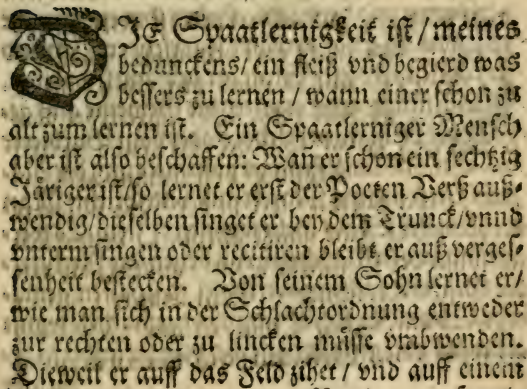 DIE Spaatlernigkeit ist / meines
bedunckens / ein fleiß vnd begierd was
bessers zu lernen / wann einer schon zu
alt zum lernen ist. Ein Spaatlerniger Mensch
aber ist also beschaffen: Wañ er schon ein sechtzig
Järiger ist / so lernet er erst der Poeten Verß auß-
wendig / dieselben singet er bey dem Trunck / vnnd
vnterm singen oder recitiren bleibt er auß verges-
senheit bestecken. Von seinem Sohn lernet er /
wie man sich in der Schlachtordnung entweder
zur rechten oder zu lincken müsse vmbwenden.
Dieweil er auff das Feld zihet / vnd auff einem